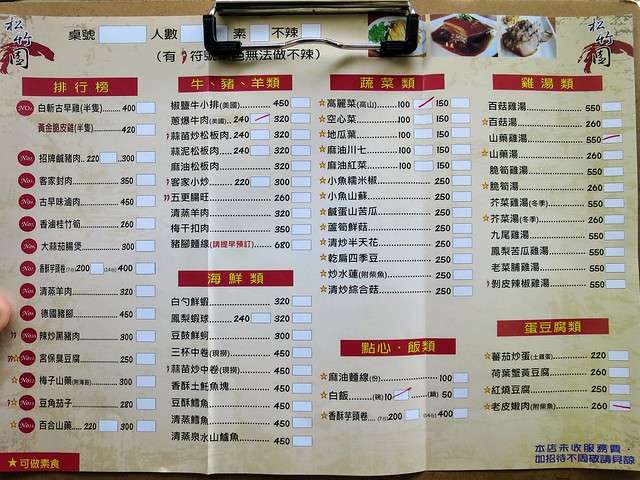 松竹園
桌號 人數 素 不辣
(有 符號 無法做不辣)
松竹園
排行榜
NO1 白斬古早雞(半隻) 400
黃金脆皮雞(半隻) 420
招牌鹹豬肉 220 300
客家封肉 350
古早味滷肉 450
香滷桂竹筍 260
大蒜茄腸煲 300
香酥芋頭卷(7台)200 (14台)400
清蒸羊肉 320
德國豬腳 450
辣炒黑豬肉 300
宮保臭豆腐 250
梅子山藥(附海苔) 300
豆角茄子 280
百合山藥 220 300
★可做素食
牛、豬、羊類
椒鹽牛小排(美國) 450
蔥爆牛肉(美國) 240 320
蒜苗炒松板肉 240 320
蒜泥松板肉 240 320
麻油松板肉 320
客家小炒 220 300
五更腸旺 260
清蒸羊肉 320
梅干扣肉 350
豬腳麵線(請提早預訂) 680
海鮮類
白勺鮮蝦 320
鳳梨蝦球 240 320
豆鼓鮮蚵 300
三杯中卷(現撈) 450
蒜苗炒中卷(現撈) 450
香酥土魠魚塊 350
豆酥鱈魚 450
清蒸鱈魚 450
清蒸泉水山鱸魚 450
蔬菜類
☆高麗菜(高山) 100 150
☆空心菜 100 150
☆地瓜葉 100 150
☆麻油川七 100 150
☆麻油紅菜 100 150
☆小魚糯米椒 250
☆小魚山蘇 250
☆鹹蛋山苦瓜 250
☆蘆筍鮮菇 250
☆清炒半天花 250
☆乾扁四季豆 250
☆炒水蓮(附柴魚) 250
☆清炒綜合菇 250
點心·飯類
☆麻油麵線(份) 100
☆白飯 (碗)10 (鍋)50
☆香酥芋頭卷 (7台)200 (14台)400
雞湯類
百菇雞湯 550
☆百菇湯 260
山藥雞湯 550
☆山藥湯 260
脆筍雞湯 550
☆脆筍湯 260
芥菜雞湯(冬季) 550
☆芥菜湯(冬季) 260
九尾雞湯 550
鳳梨苦瓜雞湯 550
老菜脯雞湯 550
剝皮辣椒雞湯 550
蛋豆腐類
☆蕃茄炒蛋(土雞蛋) 220
荷葉蟹黃豆腐 260
☆紅燒豆腐 250
☆老皮嫩肉(附柴魚) 260
本店未收服務費,
如招待不周敬請見諒